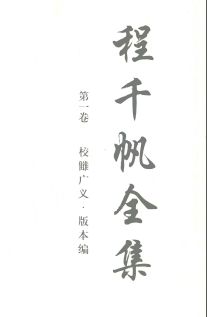 程千帆全集
第一卷 校雠广义·版本编